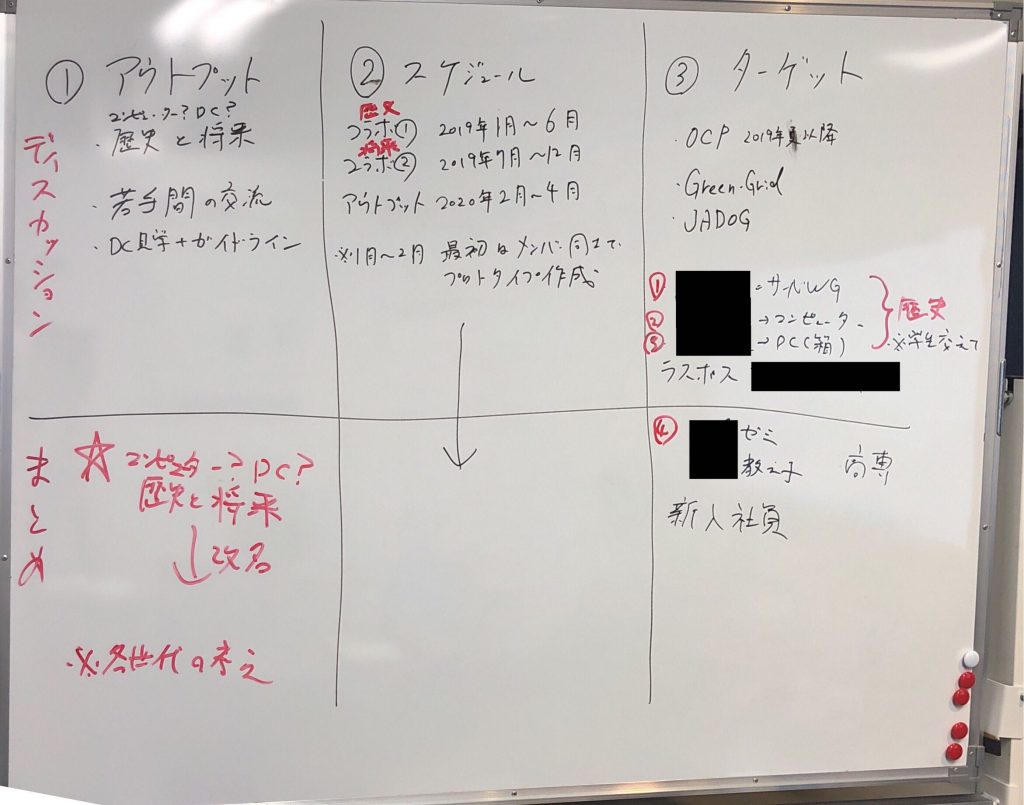 ① アウトプット
コンピューター?DC?
・歴史と将来
・若手間の交流
・DC見学+ガイドライン
ディスカッション
② スケジュール
歴史
コラボ① 2019年1月〜6月
将来
コラボ② 2019年7月〜12月
アウトプット 2020年2月〜4月
※1月〜2月 最初はメンバー同士で
プロトタイプ作成
③ ターゲット
・OCP 2019年夏以降
・Green.Grid
・JADOG
① =サーバWG
② →コンピューター
③ →DC(箱)
歴史
※学生交えて
ラスボス
まとめ
☆ コンピューター?DC?
歴史と将来
↓改名
※各世代の考え
④ ゼミ
教え子 高専
新入社員